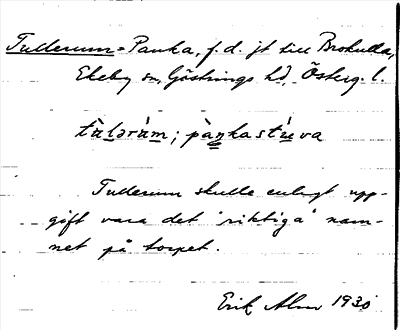 Tullerum = Panka, f.d. jt till Brokulla,
Ekeby sn, Göstrings hd, Österg. l.
tùlərùm; pàŋkastúva
Tullerum skulle enligt upp-
gift vara det "riktiga" nam-
net på torpet.
Erik Alm 1930